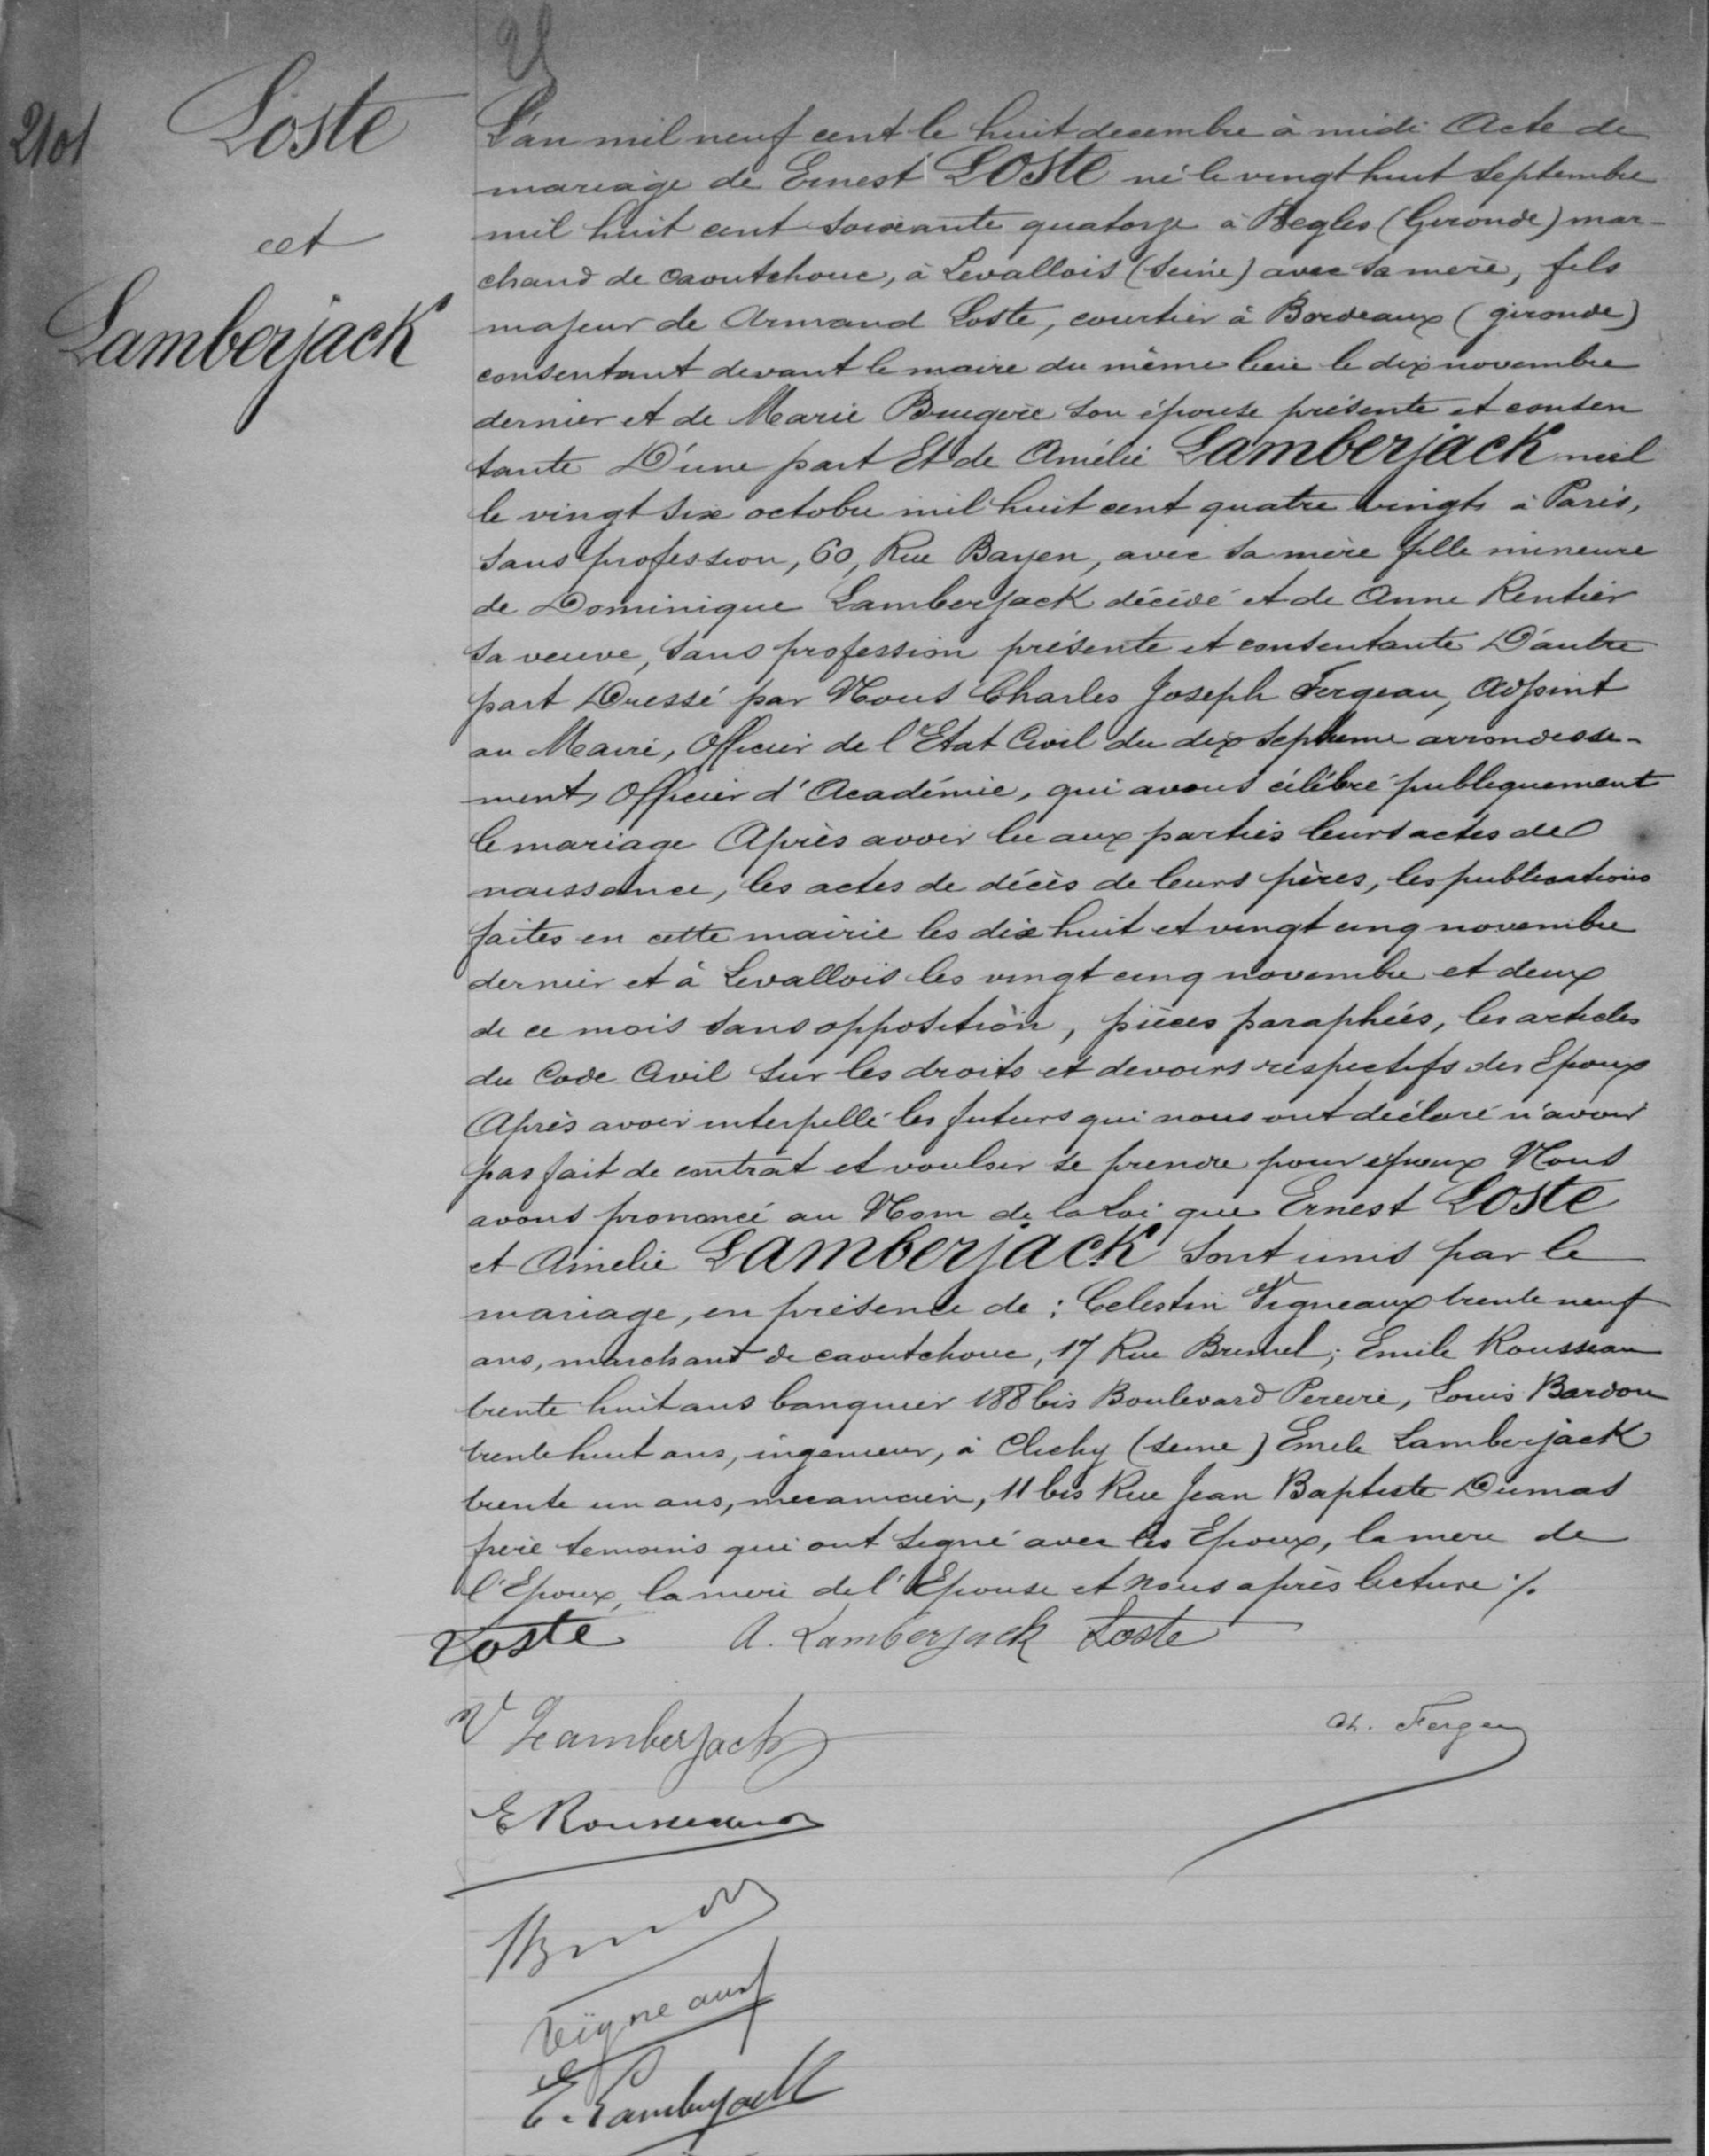 2101
Loste
et
Lamberjack
L'an mil neuf cent le huit decembre à midi Acte de
mariage de Ernest LOSTE né le vingt huit Septembre
mil huit cent soixante quatorze à Begles (Gironde) mar-
chand de caoutchouc, à Levallois (Seine) avec sa mère, fils
majeur de Armand Loste, courtier à Bordeaux (gironde)
consentant devant le maire du même lieu le dix novembre
dernier et de Marie Brugère son épouse présente et consen
tante D'une part Et de Amélie LAMBERJACK née
le vingt six octobre mil huit cent quatre vingts à Paris,
sans profession, 60, Rue Bayen, avec sa mère fille mineure
de Dominique Lamberjack décédé et de Anne Rentier
sa veuve, sans profession présente et consentante D'autre
part Dressé par Nous Charles Joseph Fergeau, Adjoint
au Maire, Officier de l'Etat Civil du dix septième arrondisse-
ment, Officier d'Académie, qui avons célébré publiquement
le mariage Après avoir lu aux parties leurs actes de
naissance, les actes de décès de leurs pères, les publications
faites en cette mairie les dix huit et vingt cinq novembre
dernier et à Levallois les vingt cinq novembre et deux
de ce mois sans opposition, pièces paraphées, les articles
du Code Civil sur les droits et devoirs respectifs des Epoux
Après avoir interpellé les futurs qui nous ont déclaré n'avoir
pas fait de contrat et vouloir se prendre pour époux Nous
avons prononcé au Nom de la Loi que Ernest LOSTE
et Amelie LAMBERJACK sont unis par le
mariage, en présence de : Celestin Vigneaux trente neuf
ans, marchand de caoutchouc, 17 Rue Brunel ; Emile Rousseau
trente huit ans banquier 188 bis Boulevard Pereire, Louis Bardon
trente huit ans, ingenieur, à Clichy (Seine) Emile Lamberjack
trente un ans, mecanicien, 11 bis Rue Jean Baptiste Dumas
frère temoins qui ont signé avec les Epoux, la mere de
l'Epoux, la mère de l'Epouse et Nous après lecture ./.
Loste A. Lamberjack Loste
V Lamberjack
Ch. Fergeau
E Rousseau
Vigneaux
E. Lamberjack